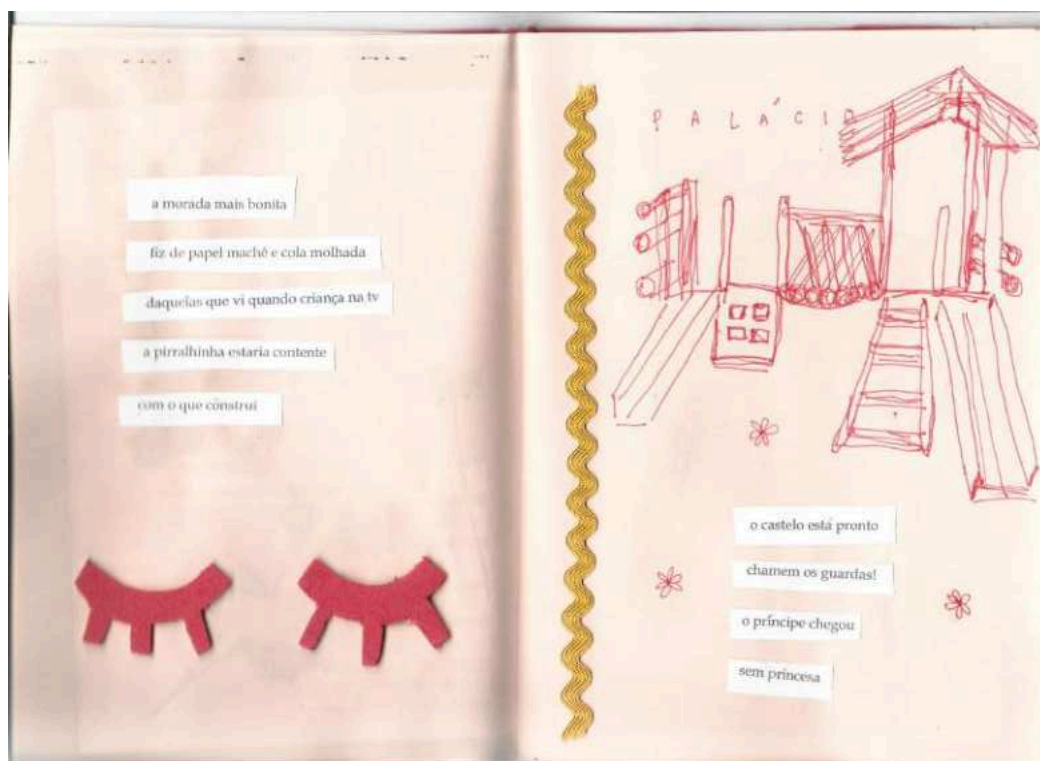 a morada mais bonita
fiz de papel machê e cola molhada
daquelas que vi quando criança na tv
a pirralhinha estaria contente
com o que construí
PALÁCIO
o castelo está pronto
chamem os guardas!
o príncipe chegou
sem princesa